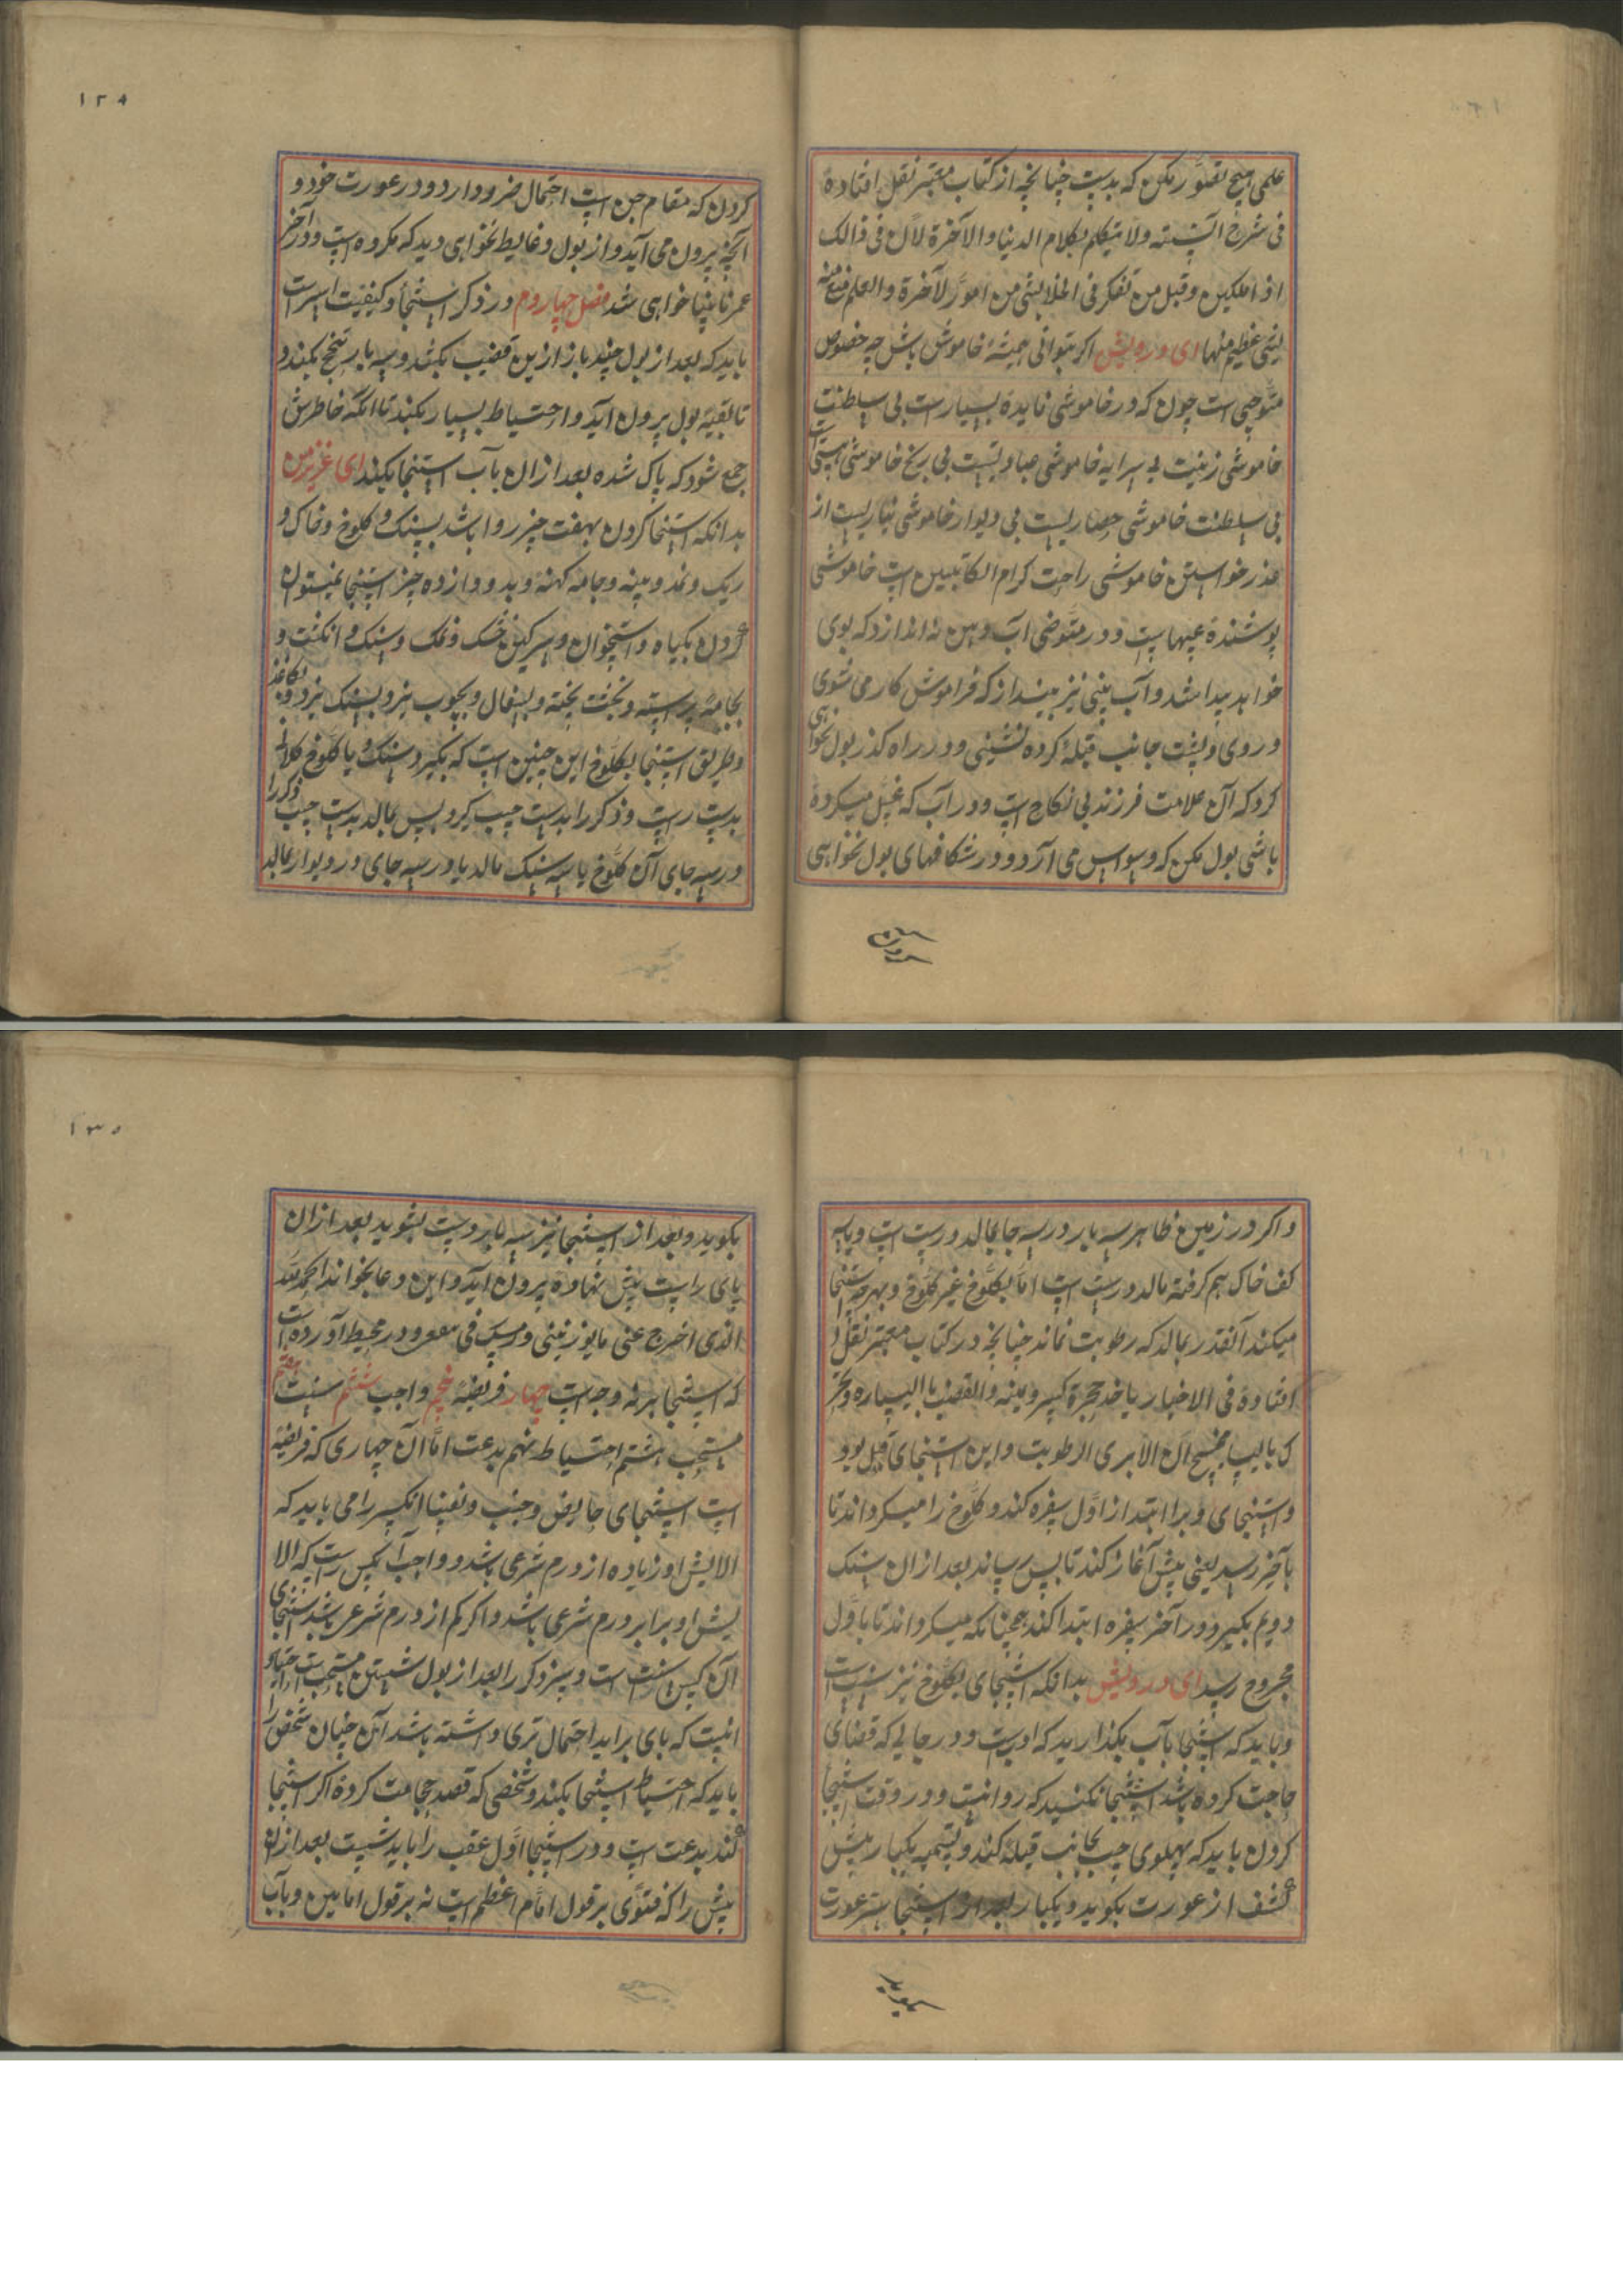 علمی هیچ تصور مکن که بدست چنانچه از کتاب معتبر نقل افتاده
فی شرح السنه ولا یتکلم بکلام الدنیا والآخرة لان فی ذالک
وقیل من تفکر فی الخلا بشی من امور لآخرة والعلم
شی عظیم منها ای درویش اکر بتوانی همیشه خاموش باش چه خصوص
متوضی است چون که در خاموشی فایده بسیارست بی سلطنت
خاموشی زینت بی پیرایه خاموشی عبادتیست بی رنج خاموشی هیبتی است
بی سلطنت خاموشی حصاریست بی دیوار خاموشی نیازیست از
عذر خواستن خاموشی راحت کرام الکاتبین است خاموشی
پوشنده عیبهاست و در متوضی آب دهن نه اندازد که بوی
خواهد پیدا شد و آب بینی نیز مینداز که فراموش کار می شوی
و روی و پشت جانب قبله کرده ننشینی و در راه کذر بول نخواهی
کرد که آن علامت فرزند بی نکاح است و در آب که غسل میکرده
باشی بول مکن که وسواس می آرد و در شکافهای بول نخواهی
۱۲۸
کردن که مقام جن است احتمال ضرر دارد و در عورت خود و
آنچه بیرون می آید و از بول و غایط نخواهی دید که مکروه است و در آخر
عمر نابینا خواهی شد فصل چهاردوم در ذکر استنجا و کیفیت
باید که بعد از بول چند بار از بن قضیب بکشد و سه بار تنحنح بکند و
تا بقیه بول بیرون آید و احتیاط بسیار بکند تا انکه خاطرش
جمع شود که پاک شده بعد ازان بآب استنجا بکند ای عزیز من
بدانکه استنجا کردن بهفت چیز روا باشد بسنک و کلوخ و خاک و
ریک و نمد و پنبه و جامه کهنه و بدوازده چیز استنجا نمیتوان
کردن بکیاه و استخوان و سرکین خشک و نمک و سنک و انکشت و
بجامه و بخشت پخته و بسفال و بچوب نیز و بسنک نیز و بکاغذ
و طریق استنجا بکلوخ این چنین است که بکیرد سنک و یا کلوخ کلان
بدست راست و ذکر را بدست چپ کیرد پس بمالد بدست چپ ذکر را
در سه جای آن کلوخ یا سه سنک مالد یا در سه جای در دیوار بمالد
و اکر در زمین ظاهر سه بار در سه جا بمالد درست است و یا سه
کف خاک هم کرفته مالد درست است اما بکلوخ غیر کلوخ و بهرچه استنجا
میکند آنقدر بمالد که رطوبت نماند چنانچه در کتاب معتبر نقل
افتاده فی الاخبار یاخذ حجرة والقضیب بالیساره
الرطوبت و این استنجای قبل بود
و استنجای دبر ابتدا از اول سفره کند و کلوخ را میکرداند تا
بآخر رسد یعنی پیش آغاز کند تا پس رساند بعد ازان سنک
دویم بکیرد و در آخر سفره ابتدا کند همچنانکه میکرداند تا باول
مجروح رسد ای درویش بدانکه استنجای بکلوخ نیز سنت است
و باید که استنجا بآب بکذارید که اوست و در جایی که قضای
حاجت کرده باشد استنجا نکنید که روا نیست و در وقت استنجا
کردن باید که پهلوی چپ بجانب قبله کند و تسمیه یکبار پیش
کشف از عورت بکوید و یکبار بعد از استنجا ستر عورت
بکوید
۱۳۰
بکوید و بعد از استنجا نیز سه بار دست بشوید بعد ازان
پای راست پیش نهاده بیرون آید و این دعا بخواند الحمدلله
الذی اخرج عنی ما یوذینی و امسک فی و در محیط آورده است
که استنجا بر نه وجه است چهار فریضه پنجم واجب ششم سنت هفتم
مستحب هشتم احتیاط نهم بدعت اما آن چهاری که فریضه
است استنجای حایض و جنب و نفسا انکس را می باید که
الایش او زیاده از درم شرعی باشد و واجب آنکس راست که الا
یش او برابر درم شرعی باشد و اکر کم از درم شرعی باشد استنجای
آن کس سنت است و سر ذکر را بعد از بول شستن مستحب است و احتیاط
انست که بای براید احتمال تری داشته باشد آن چنان شخص را
باید که احتیاط استنجا بکند و شخصی که قصد حجامت کرده اکر استنجا
کند بدعت است و در استنجا اول عقب را باید شست بعد ازان
پیش را که فتوی بر قول امام اعظم است نه بر قول امامین و بآب